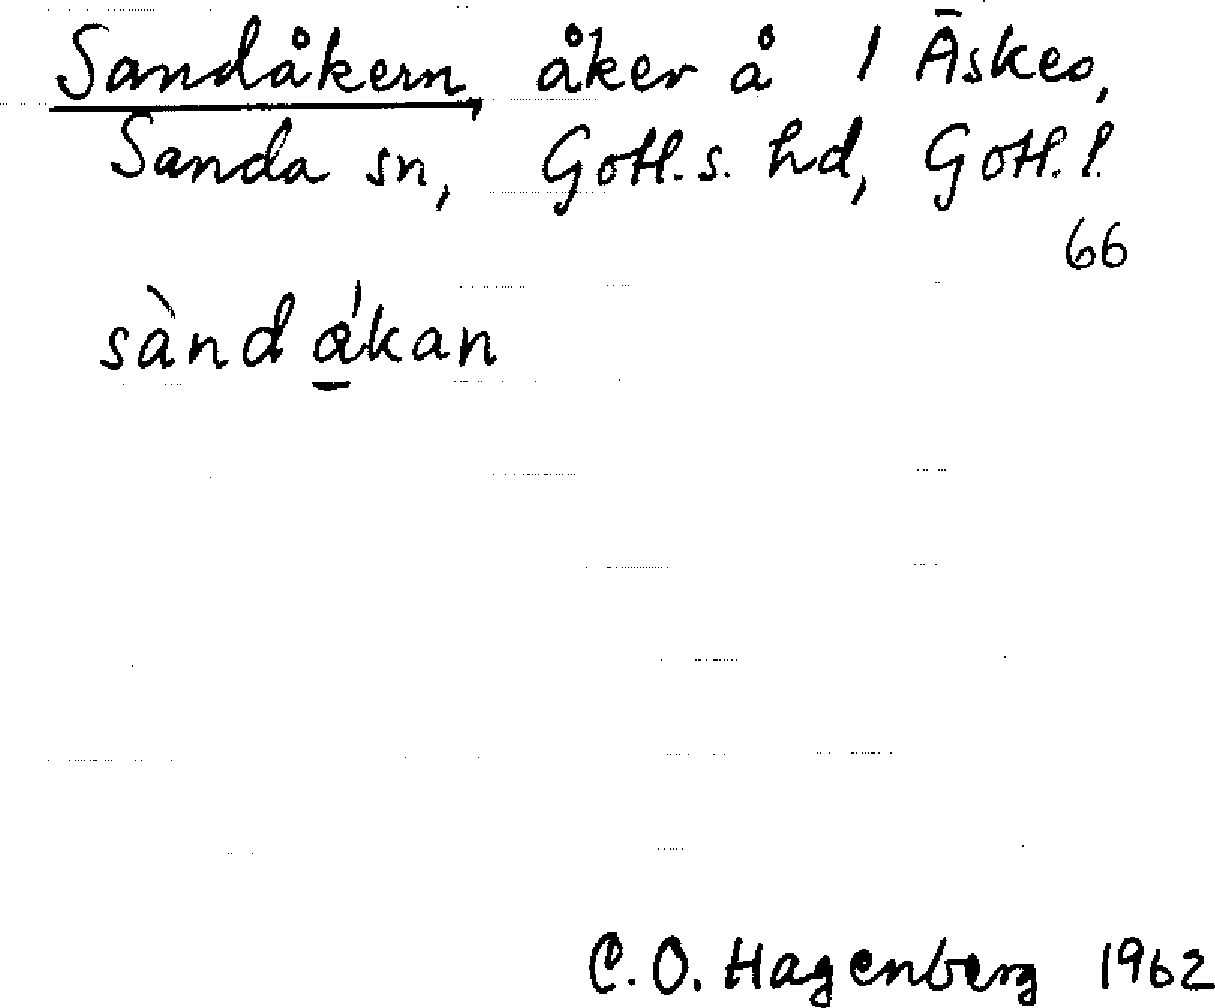 Sandåkern, åker å 1 Äskes,
Sanda sn, Gotl. s. hd, Gotl. l.
66
sànd á̱kan
C. O. Hagenberg 1962